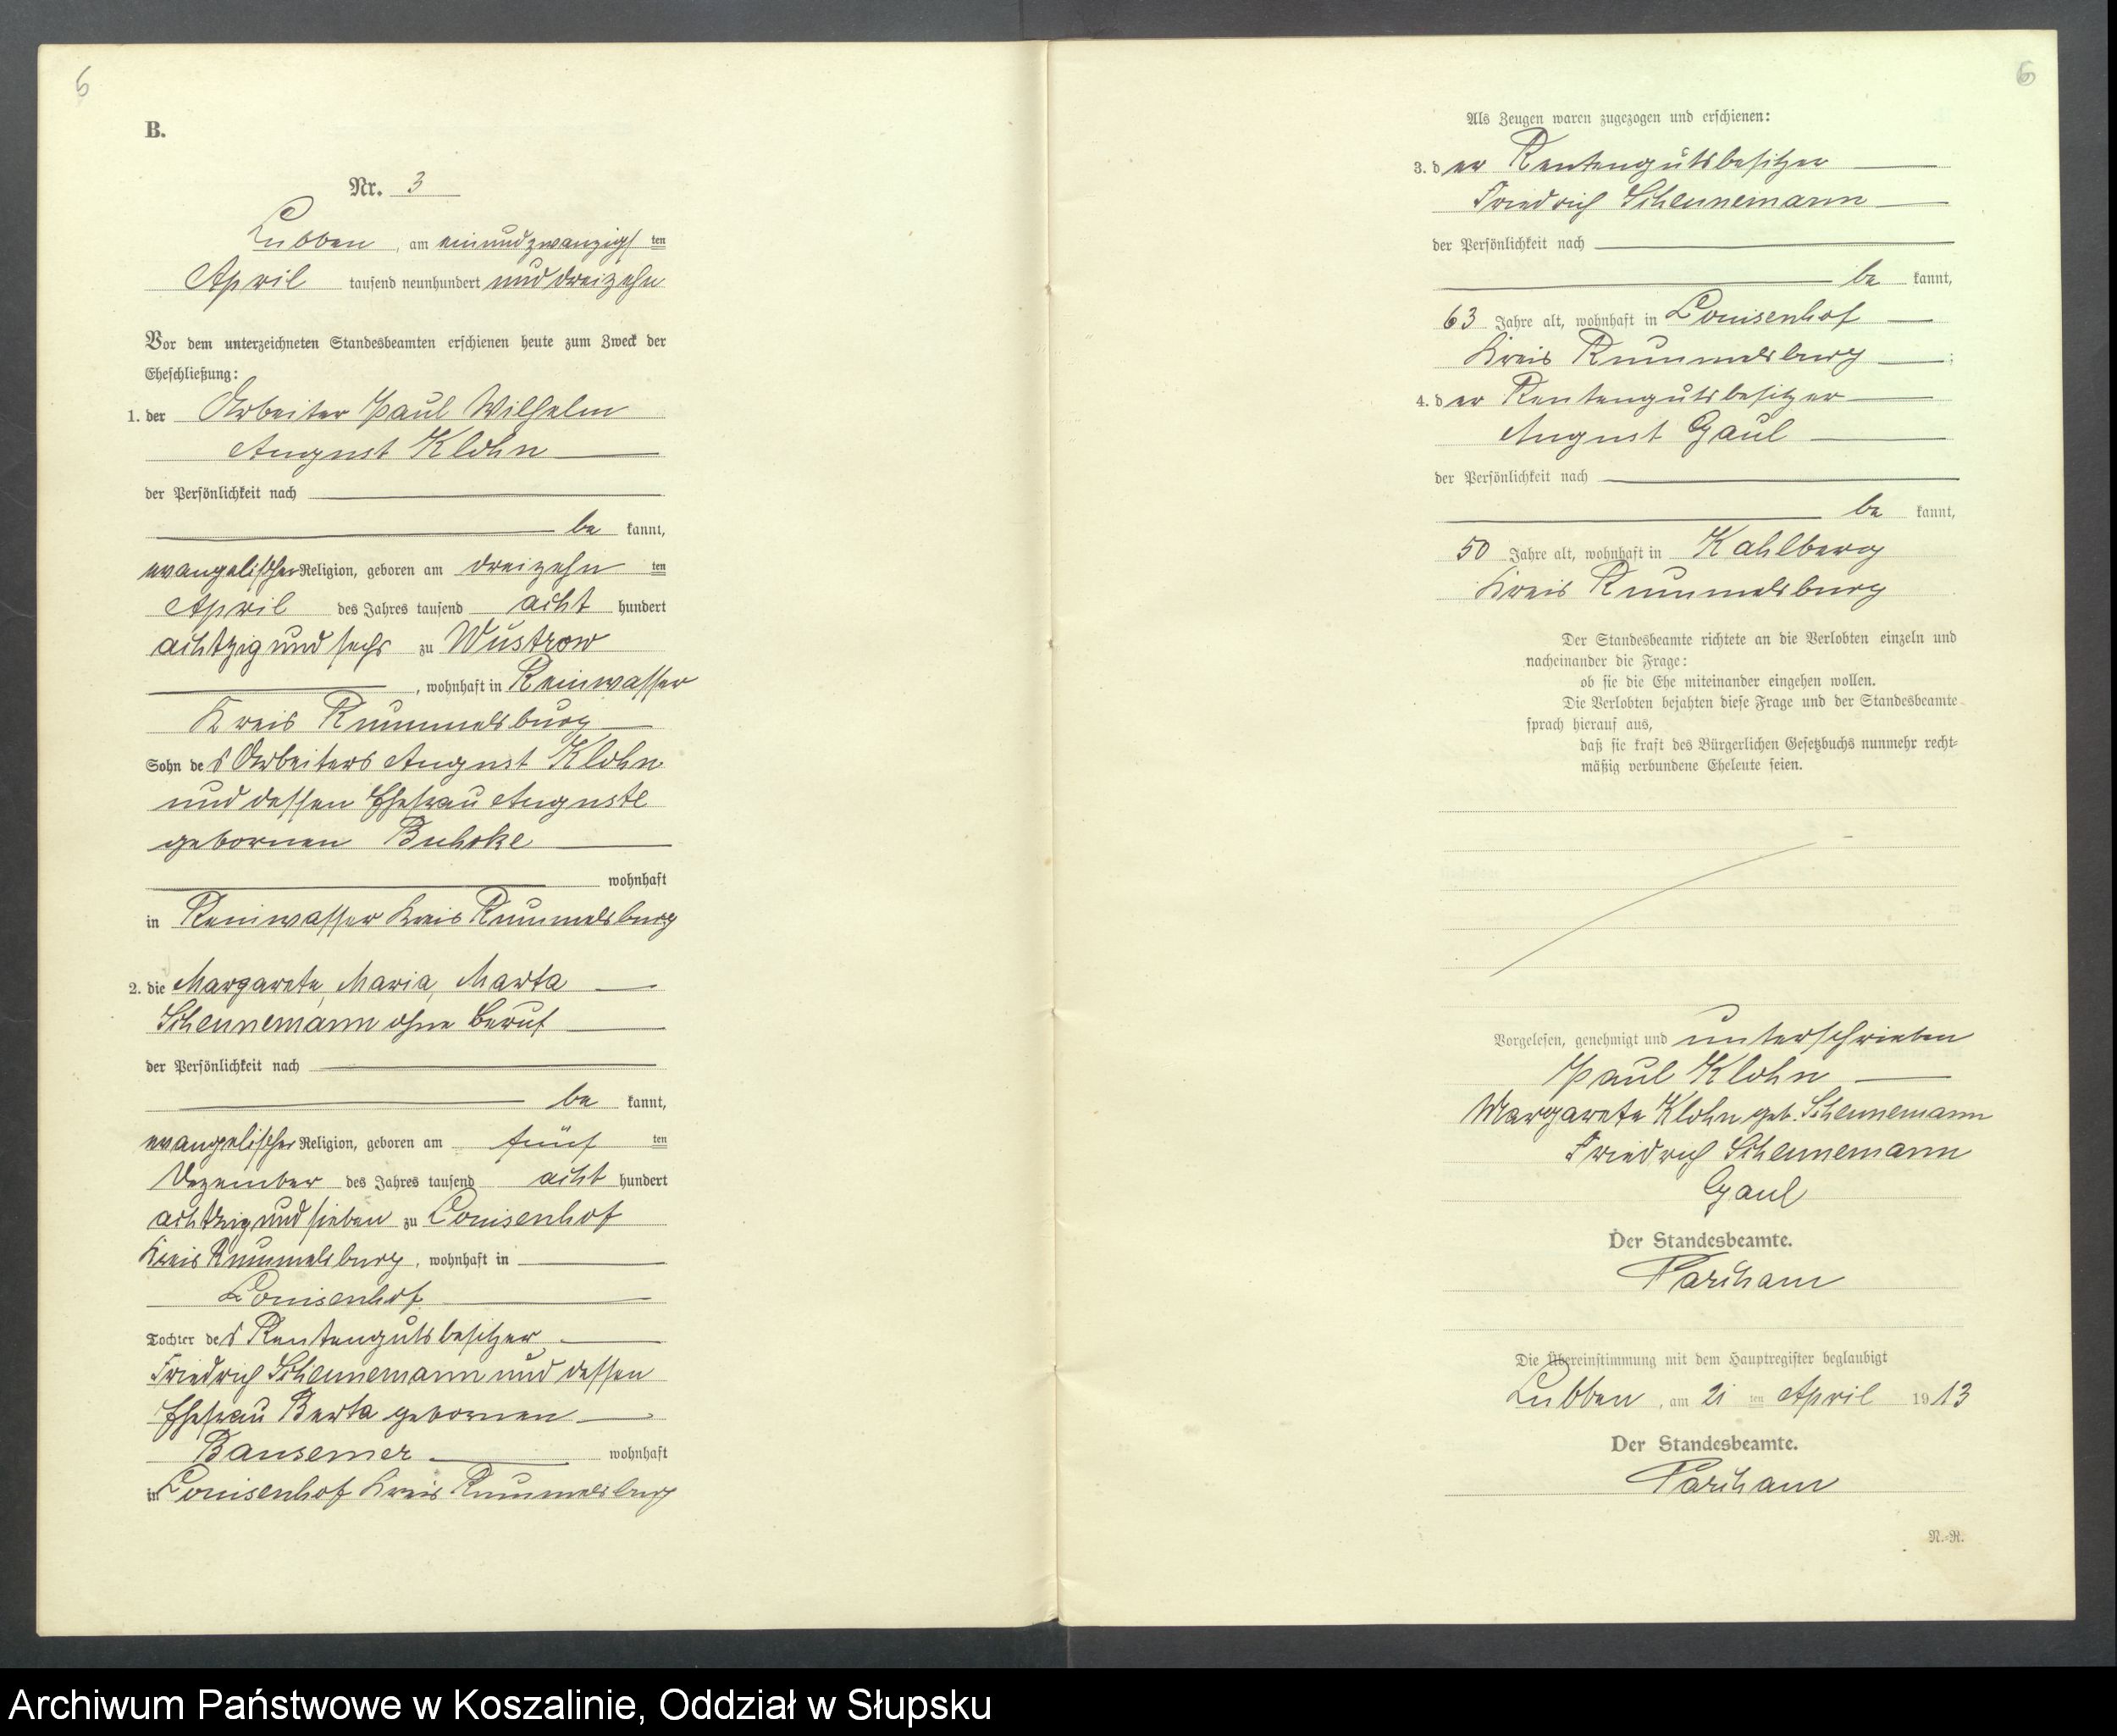 6
B.
Nr. 3
Lubben, am einundzwanzigsten
April tausend neunhundert und dreizehn
Vor dem unterzeichneten Standesbeamten erschienen heute zum Zweck der
Eheschließung:
1. der Arbeiter Paul Wilhelm
August Klohn
der Persönlichkeit nach
be kannt,
evangelischer Religion, geboren am dreizehn ten
April des Jahres tausend acht hundert
achtzig und sechs zu Wustrow
, wohnhaft in Reinwasser
Kreis Rummelsburg
Sohn des Arbeiters August Klohn
und dessen Ehefrau Auguste
gebornen
wohnhaft
in Reinwasser Kreis Rummelsburg
2. die Margarete, Maria, Marta
Scheunemann ohne Beruf
der Persönlichkeit nach
be kannt,
evangelischer Religion, geboren am fünf ten
Dezember des Jahres tausend acht hundert
achtzig und sieben zu Louisenhof
Kreis Rummelsburg, wohnhaft in
Louisenhof
Tochter des Rentengutsbesitzer
Friedrich Scheunemann und dessen
Ehefrau Berta gebornen
Bansemer wohnhaft
in Louisenhof Kreis Rummelsburg
6
Als Zeugen waren zugezogen und erschienen:
3. der Rentengutsbesitzer
Friedrich Scheunemann
der Persönlichkeit nach
be kannt,
63 Jahre alt, wohnhaft in Louisenhof
Kreis Rummelsburg ;
4. der Rentengutsbesitzer
August Gaul
der Persönlichkeit nach
be kannt,
50 Jahre alt, wohnhaft in Kahlberg
Kreis Rummelsburg
Der Standesbeamte richtete an die Verlobten einzeln und
nacheinander die Frage:
ob sie die Ehe miteinander eingehen wollen.
Die Verlobten bejahten diese Frage und der Standesbeamte
sprach hierauf aus,
daß sie kraft des Bürgerlichen Gesetzbuchs nunmehr recht-
mäßig verbundene Eheleute seien.
Vorgelesen, genehmigt und unterschrieben
Paul Klohn
Margarete Klohn geb. Scheunemann
Friedrich Scheunemann
Gaul
Der Standesbeamte.
Parcham
Die Übereinstimmung mit dem Hauptregister beglaubigt
Lubben, am 21 ten April 1913
Der Standesbeamte.
Parcham
N.-R.
Archiwum Państwowe w Koszalinie, Oddział w Słupsku